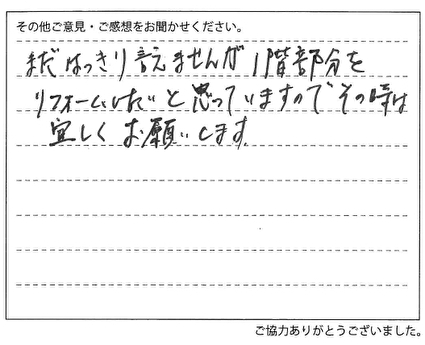 その他ご意見・ご感想をお聞かせください。
まだはっきり言えませんが1階部分を
リフォームしたいと思っていますのでその時は
宜しくお願いします。
ご協力ありがとうございました。